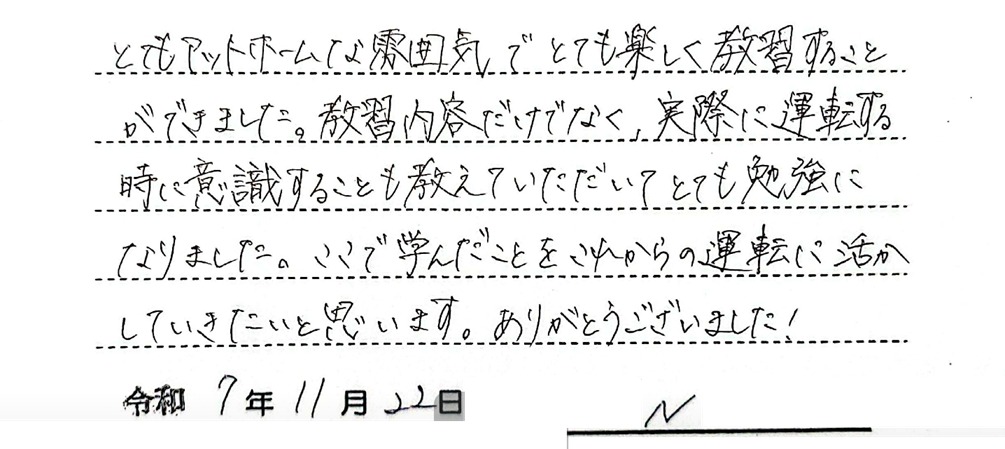 とてもアットホームな雰囲気でとても楽しく教習すること
ができました。教習内容だけでなく、実際に運転する
時に意識することも教えていただいてとても勉強に
なりました。ここで学んだことをこれからの運転に活か
していきたいと思います。ありがとうございました!
令和 7年 11月 22日
N